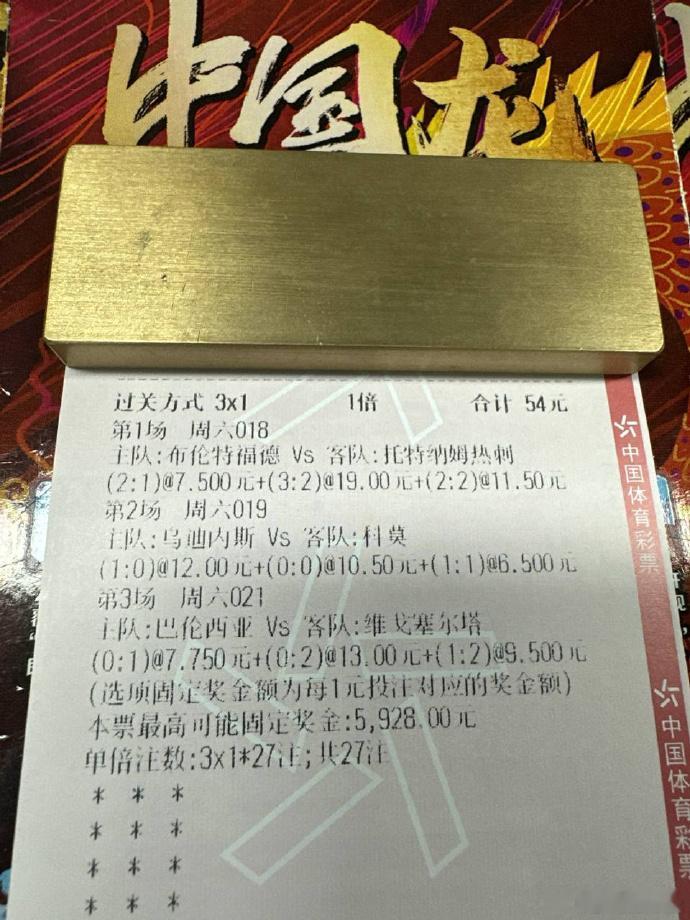 中国龙
过关方式 3x1 1倍 合计 54元
第1场 周六018
主队:布伦特福德 Vs 客队:托特纳姆热刺
(2:1)@7.500元+(3:2)@19.00元+(2:2)@11.50元
第2场 周六019
主队:乌迪内斯 Vs 客队:科莫
(1:0)@12.00元+(0:0)@10.50元+(1:1)@6.500元
第3场 周六021
主队:巴伦西亚 Vs 客队:维戈塞尔塔
(0:1)@7.750元+(0:2)@13.00元+(1:2)@9.500元
(选项固定奖金额为每1元投注对应的奖金额)
本票最高可能固定奖金:5,928.00元
单倍注数:3x1*27注;共27注
* * *
* * *
* * *
* * *
中国体育彩票
中国体育彩票